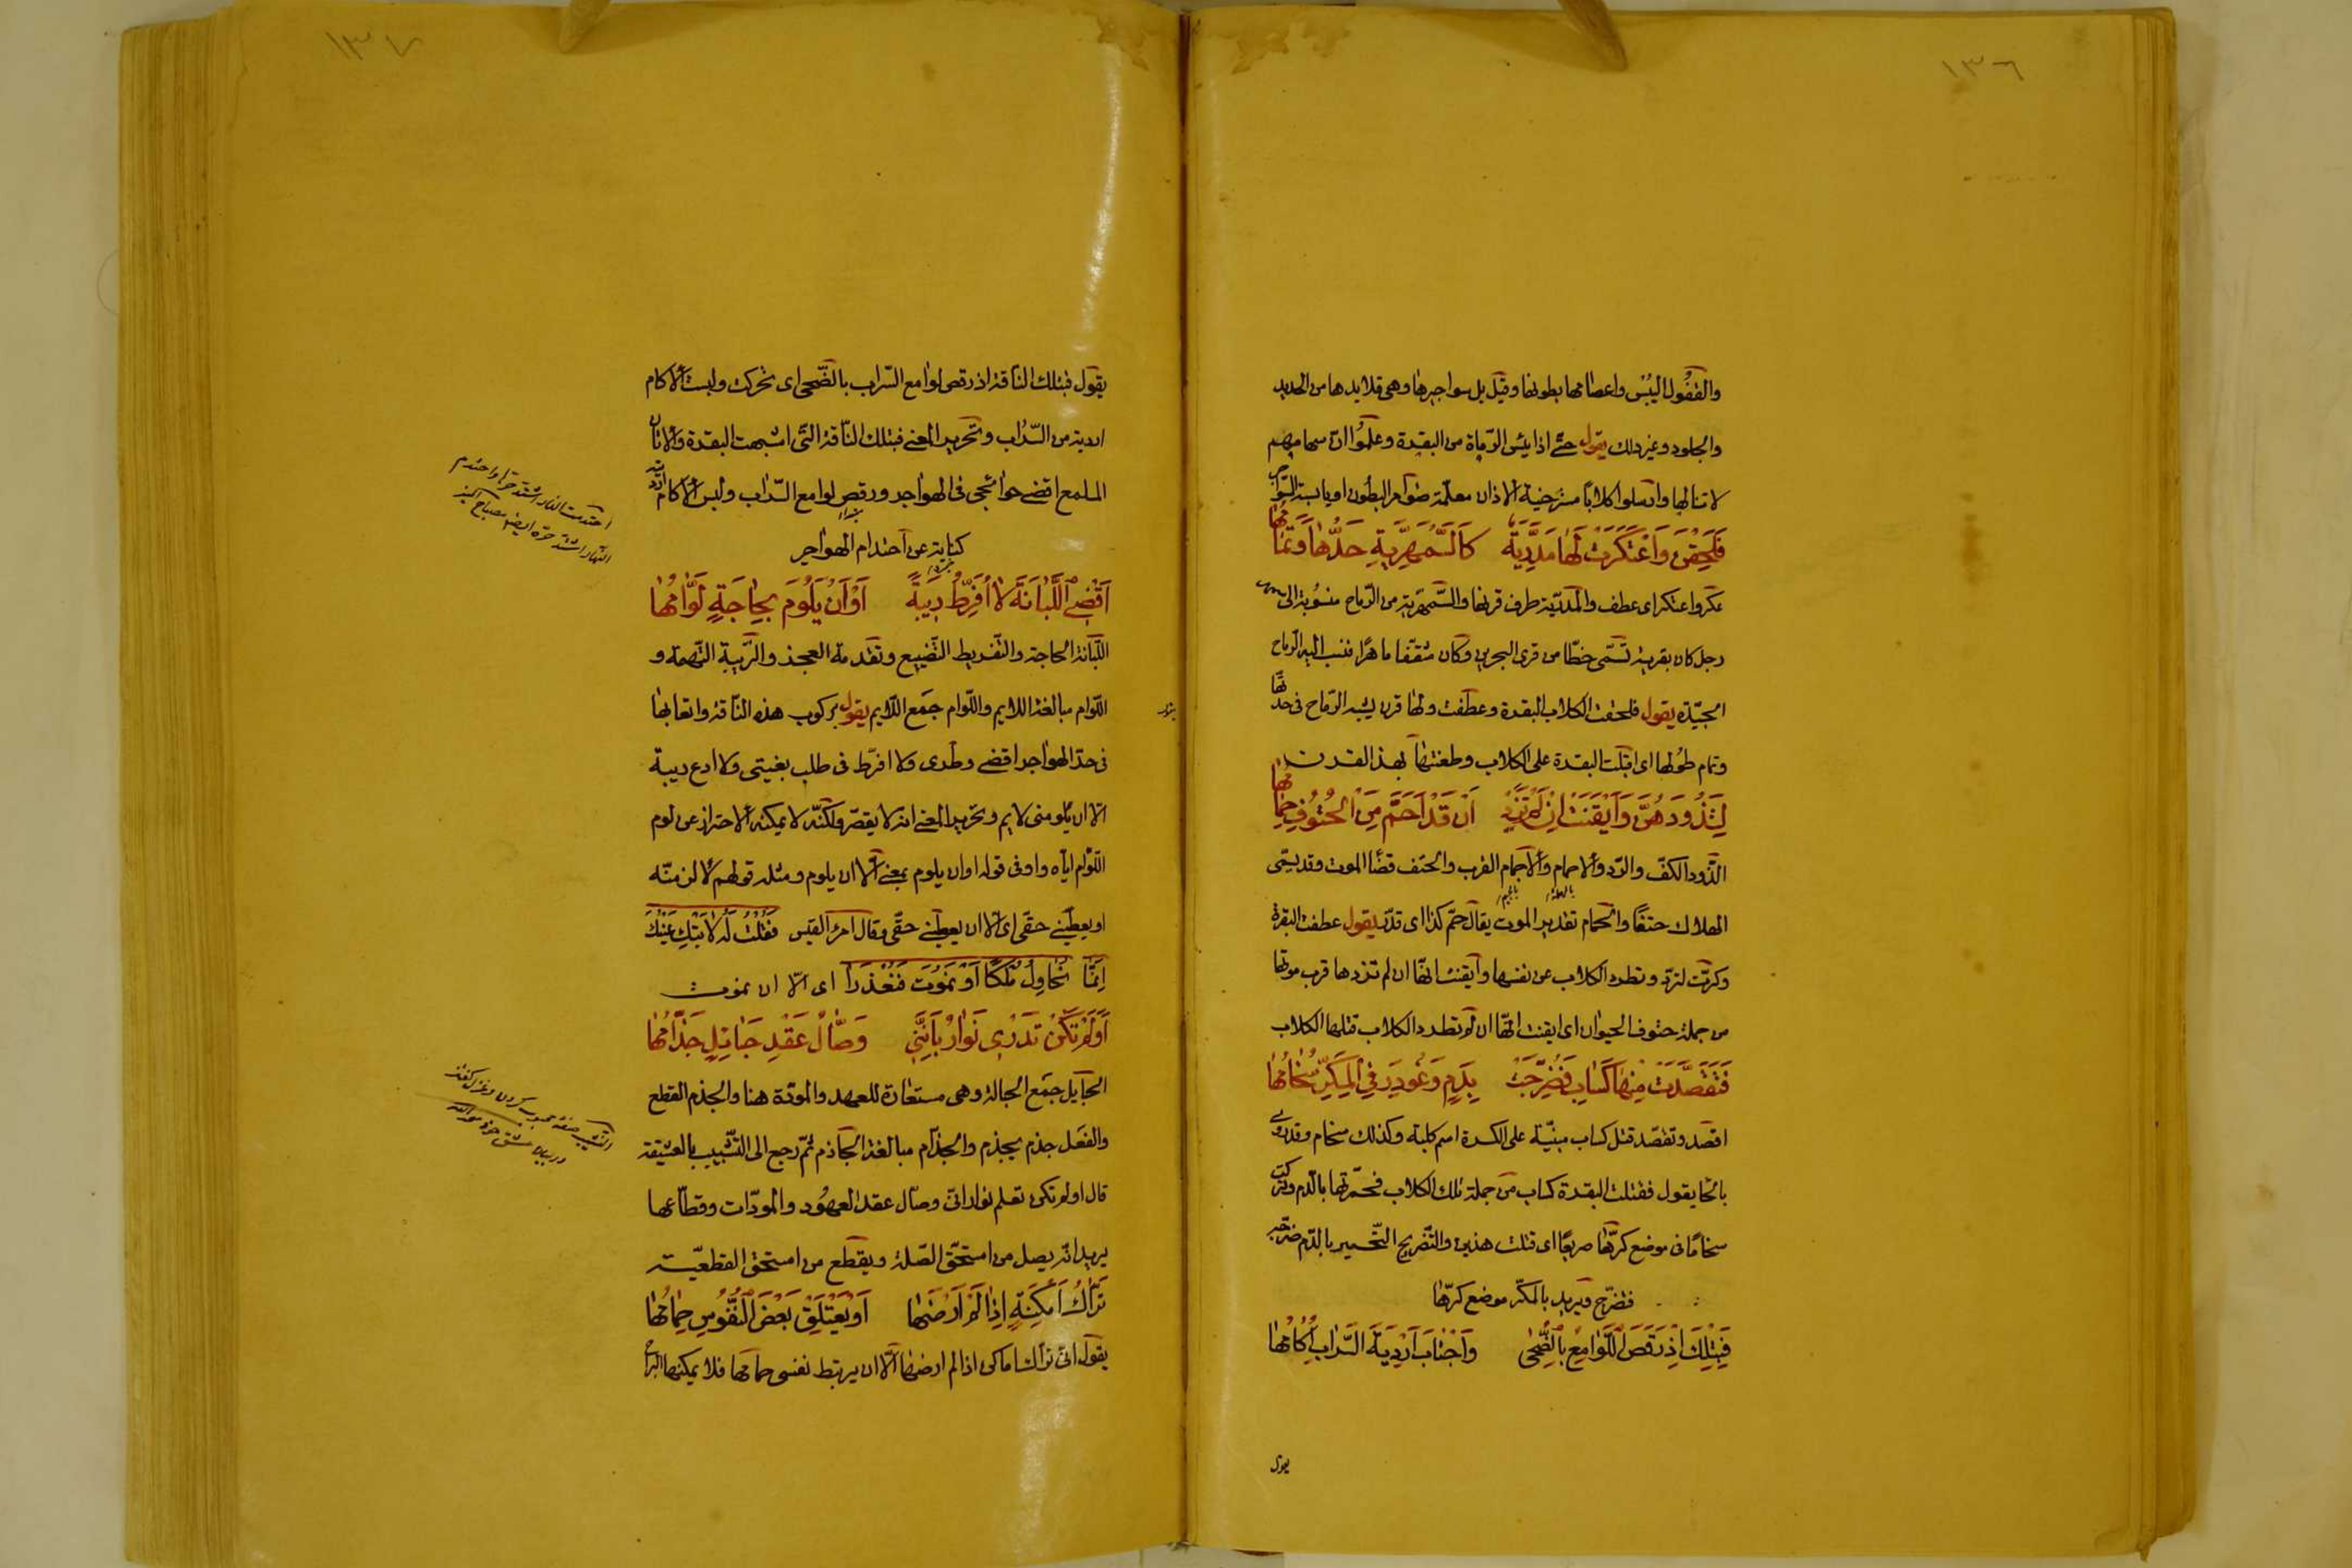 ١٣٦
والقفول اليبس واعصامها بطونها وقيل بل سواجيرها وهى قلايدها من الحديد
والجلود وغير ذلك يقول حتى اذا يئس الرماة من البقرة وعلموا ان سهامهم
لا تنالها وارسلوا كلابا مسترخية الاذان معلمة ضوامر البطون او يابسة السواجر
فَلَحِقْنَ وَاعْتَكَرَتْ لَهَا مَدَرِيَّةٌ كَالسَّمْهَرِيَّةِ حَدُّهَا وَتَمَامُهَا
عكر واعتكر اى عطف والمدرية طرف قرنها والسمهرية من الرماح منسوبة الى سمهر
رجل كان بقرية تسمى خطا من قرى البحرين وكان مثقفا ماهرا فنسب اليه الرماح
الجيدة يقول فلحقت الكلاب البقرة وعطفت ولها قرن يشبه الرماح فى حدتها
وتمام طولها اى اقبلت البقرة على الكلاب وطعنتها بهذا القرن
لِتَذُودَهُنَّ وَاَيْقَنَتْ اِنْ لَمْ تَذُدْ اَنْ قَدْ اَحَمَّ مِنَ الْحُتُوفِ حِمَامُهَا
الذود الكف والرد والاحمام والاجمام القرب والحتف قضا الموت وقد يسمى
بالمهملة بالجيم
الهلاك حتفا والحمام تقدير الموت يقال حم كذا اى قدر يقول عطفت البقرة
وكرت لترد وتطرد الكلاب عن نفسها وايقنت انها ان لم تذدها قرب موتها
من جملة حتوف الحيوان اى ايقنت انها ان لم تطرد الكلاب قتلها الكلاب
فَتَقَصَّدَتْ مِنْهَا كَسَابِ فَضُرِّجَتْ بِدَمٍ وَغُودِرَ فِي الْمَكَرِّ سُخَامُهَا
اقصد وتقصد قتل كساب مبنية على الكسرة اسم كلبة وكذلك سخام وقد روى
بالحا يقول فقتلت البقرة كساب من جملة تلك الكلاب فحمرتها بالدم وتركت
سخاما فى موضع كرها صريعا اى قتلت هذين والتضريج التحمير بالدم ضرجه
فتضرج ويريد بالمكر موضع كرها
فَبِتِلْكَ اِذْ رَقَصَ اللَّوَامِعُ بِالضُّحَى وَاجْتَابَ اَرْدِيَةَ السَّرَابِ اِكَامُهَا
يقول
١٣٧
يقول فبتلك الناقة اذ رقص لوامع السراب بالضحى اى تحركت ولبست الاكام
اردية من السراب وتحرير المعنى فبتلك الناقة التى اشبهت البقرة والاتان
الملمع اقضى حوائجى فى الهواجر ورقص لوامع السراب ولبس الاكام ارديته
كناية عن احتدام الهواجر
احتدمت النار اشتد حرها واحتدم
النهار اشتد حره ايضا مصباح المنير
اَقْضِي اللُّبَانَةَ لَا اُفَرِّطُ رِيبَةً اَوْ اَنْ يَلُومَ بِحَاجَةٍ لَوَّامُهَا
اللبانة الحاجة والتفريط التضييع وتقدمة العجز والريبة التهمة و
اللوام مبالغة اللايم واللوام جمع اللايم يقول بركوب هذه الناقة واتعابها
فى حر الهواجر اقضى وطرى ولا افرط فى طلب بغيتى ولا ادع ريبة
الا ان يلومنى لايم وتحرير المعنى انه لا يقصر ولكنه لا يمكنه الاحتراز عن لوم
اللوام اياه واو فى قوله او ان يلوم بمعنى الا ان يلوم ومثله قولهم لالزمنه
او يعطينى حقى اى الا ان يعطينى حقى وقال امرء القيس فَقُلْتُ لَهُ لَا تَبْكِ عَيْنُكَ
اِنَّمَا نُحَاوِلُ مُلْكًا اَوْ نَمُوتَ فَنُعْذَرَا اى الا ان نموت
اَوَلَمْ تَكُنْ تَدْرِى نَوَارُ بِاَنَّنِي وَصَّالُ عَقْدِ حَبَائِلٍ جَذَّامُهَا
الحبايل جمع الحبالة وهى مستعارة للعهد والمودة هنا والجذم القطع
والفعل جذم يجذم والجذام مبالغة الجاذم ثم رجع الى التشبيب بالعشيقة
قال اولم تكن تعلم نوار انى وصال عقد العهود والمودات وقطاعها
يريد انه يصل من استحق الصلة ويقطع من استحق القطيعة
تَرَّاكُ اَمْكِنَةٍ اِذَا لَمْ اَرْضَهَا اَوْ يَعْتَلِقْ بَعْضَ النُّفُوسِ حِمَامُهَا
يقول انى تراك اماكن اذا لم ارضها الا ان يرتبط نفسى حمامها فلا يمكنها البراح